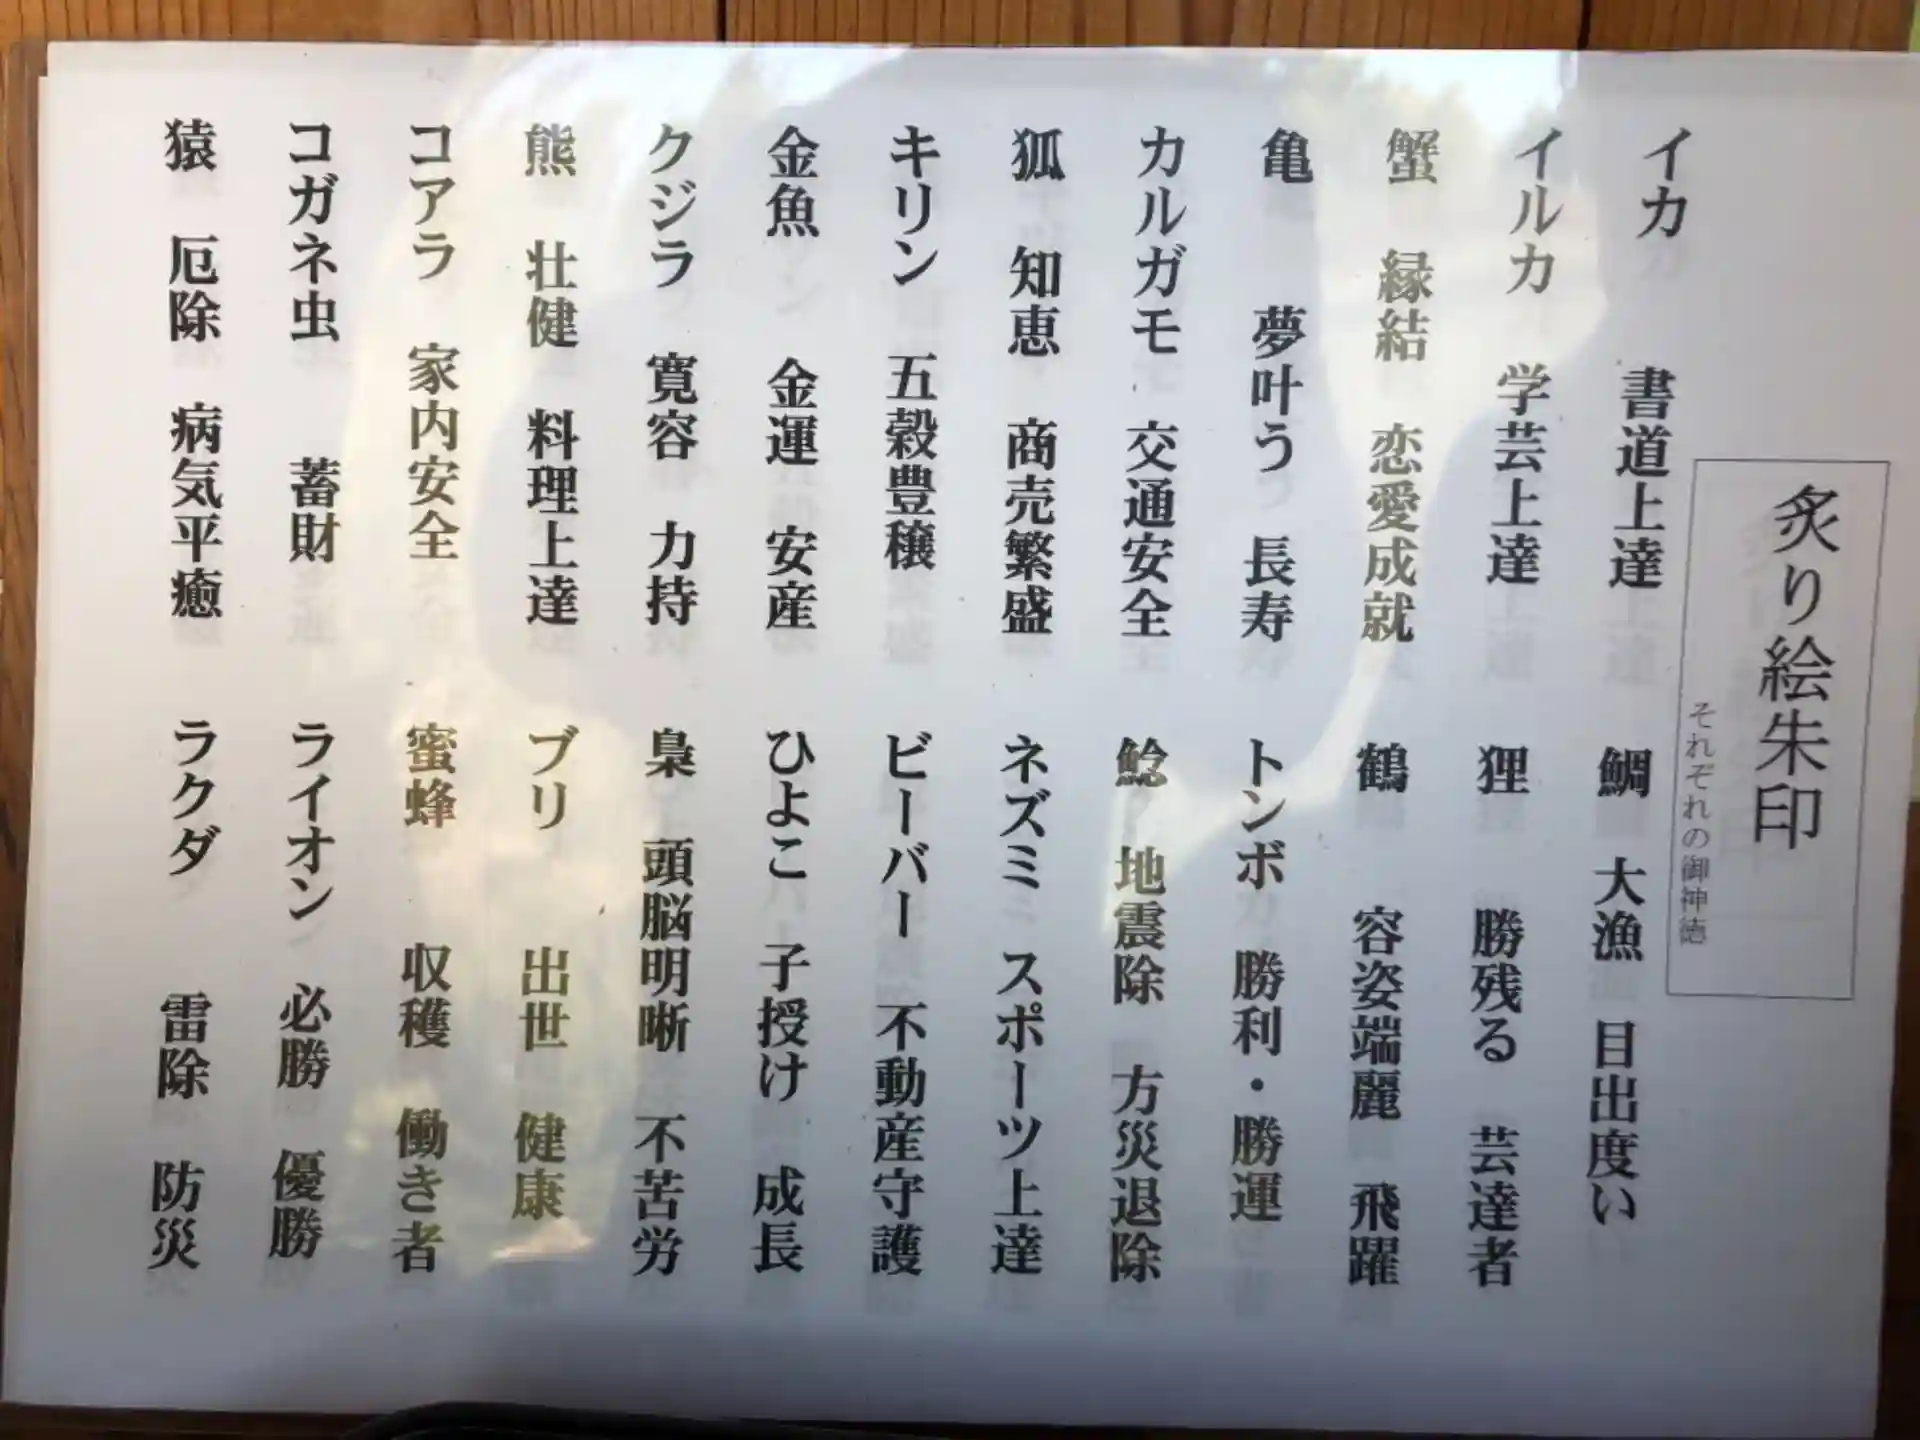 炙り絵朱印
それぞれの御神徳
イカ 書道上達
イルカ 学芸上達
蟹 縁結 恋愛成就
亀 夢叶う 長寿
カルガモ 交通安全
狐 知恵 商売繁盛
キリン 五穀豊穣
金魚 金運 安産
クジラ 寛容 力持
熊 壮健 料理上達
コアラ 家内安全
コガネ虫 蓄財
猿 厄除 病気平癒
鯛 大漁 目出度い
狸 勝残る 芸達者
鶴 容姿端麗 飛躍
トンボ 勝利・勝運
鯰 地震除 方災退除
ネズミ スポーツ上達
ビーバー 不動産守護
ひよこ 子授け 成長
梟 頭脳明晰 不苦労
ブリ 出世 健康
蜜蜂 収穫 働き者
ライオン 必勝 優勝
ラクダ 雷除 防災